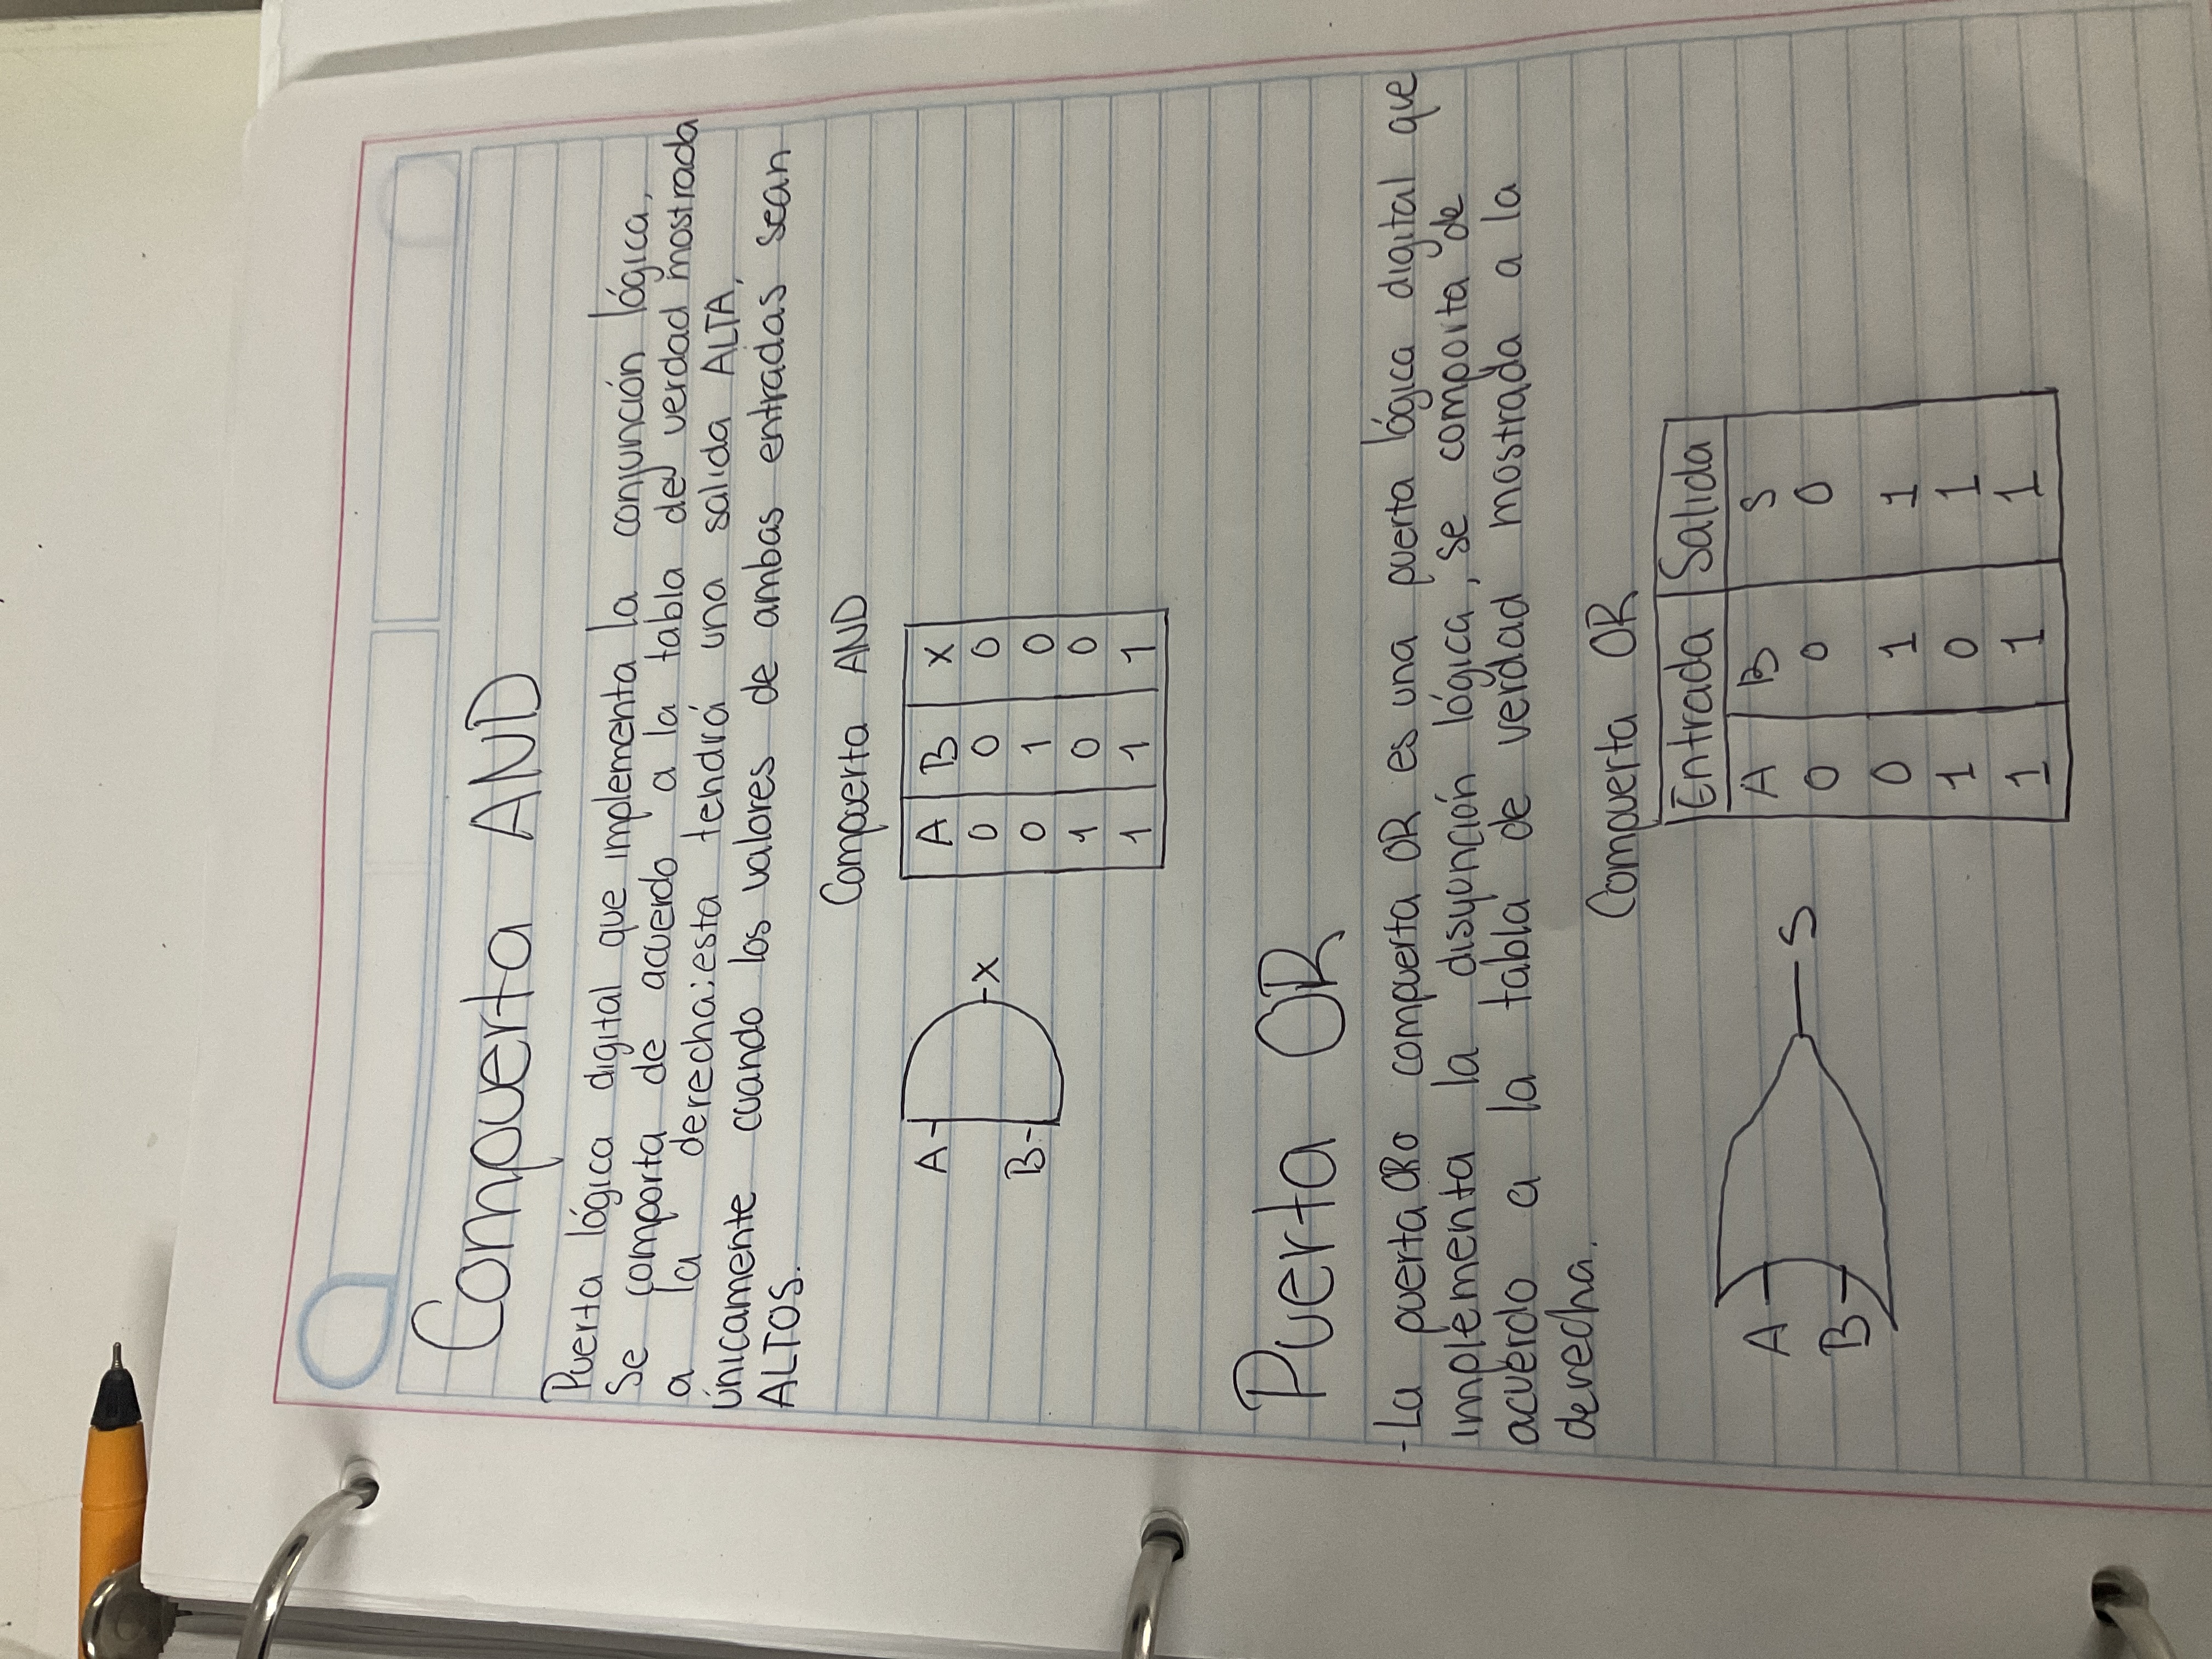 Compuerta AND
Puerta lógica digital que implementa la conjunción lógica,
se comporta de acuerdo a la tabla de verdad mostrada
a la derecha; esta tendrá una salida ALTA,
únicamente cuando los valores de ambas entradas sean
ALTOS.
Compuerta AND
A B X
0 0 0
0 1 0
1 0 0
1 1 1
A
B
X
Puerta OR
-La puerta OR o compuerta OR es una puerta lógica digital que
implementa la disyunción lógica, se comporta de
acuerdo a la tabla de verdad mostrada a la
derecha.
Compuerta OR
Entrada Salida
A B S
0 0 0
0 1 1
1 0 1
1 1 1
A
B
S